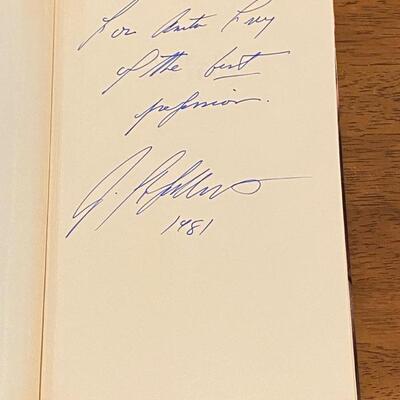 For Anita Levy
of the best
profession.
J.
1981